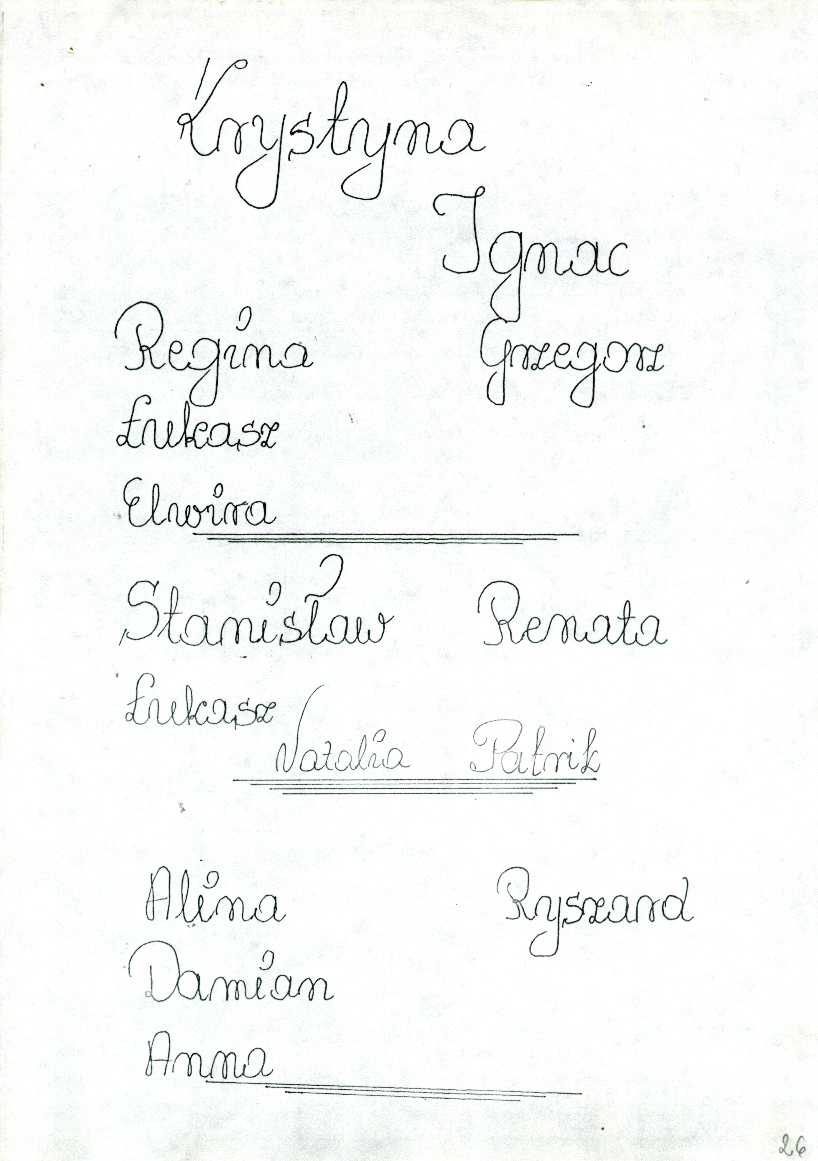 Krystyna
Ignac
Regina Grzegorz
Łukasz
Elwira
Stanisław Renata
Łukasz
Natalia Patrik
Alina Ryszard
Damian
Anna
26